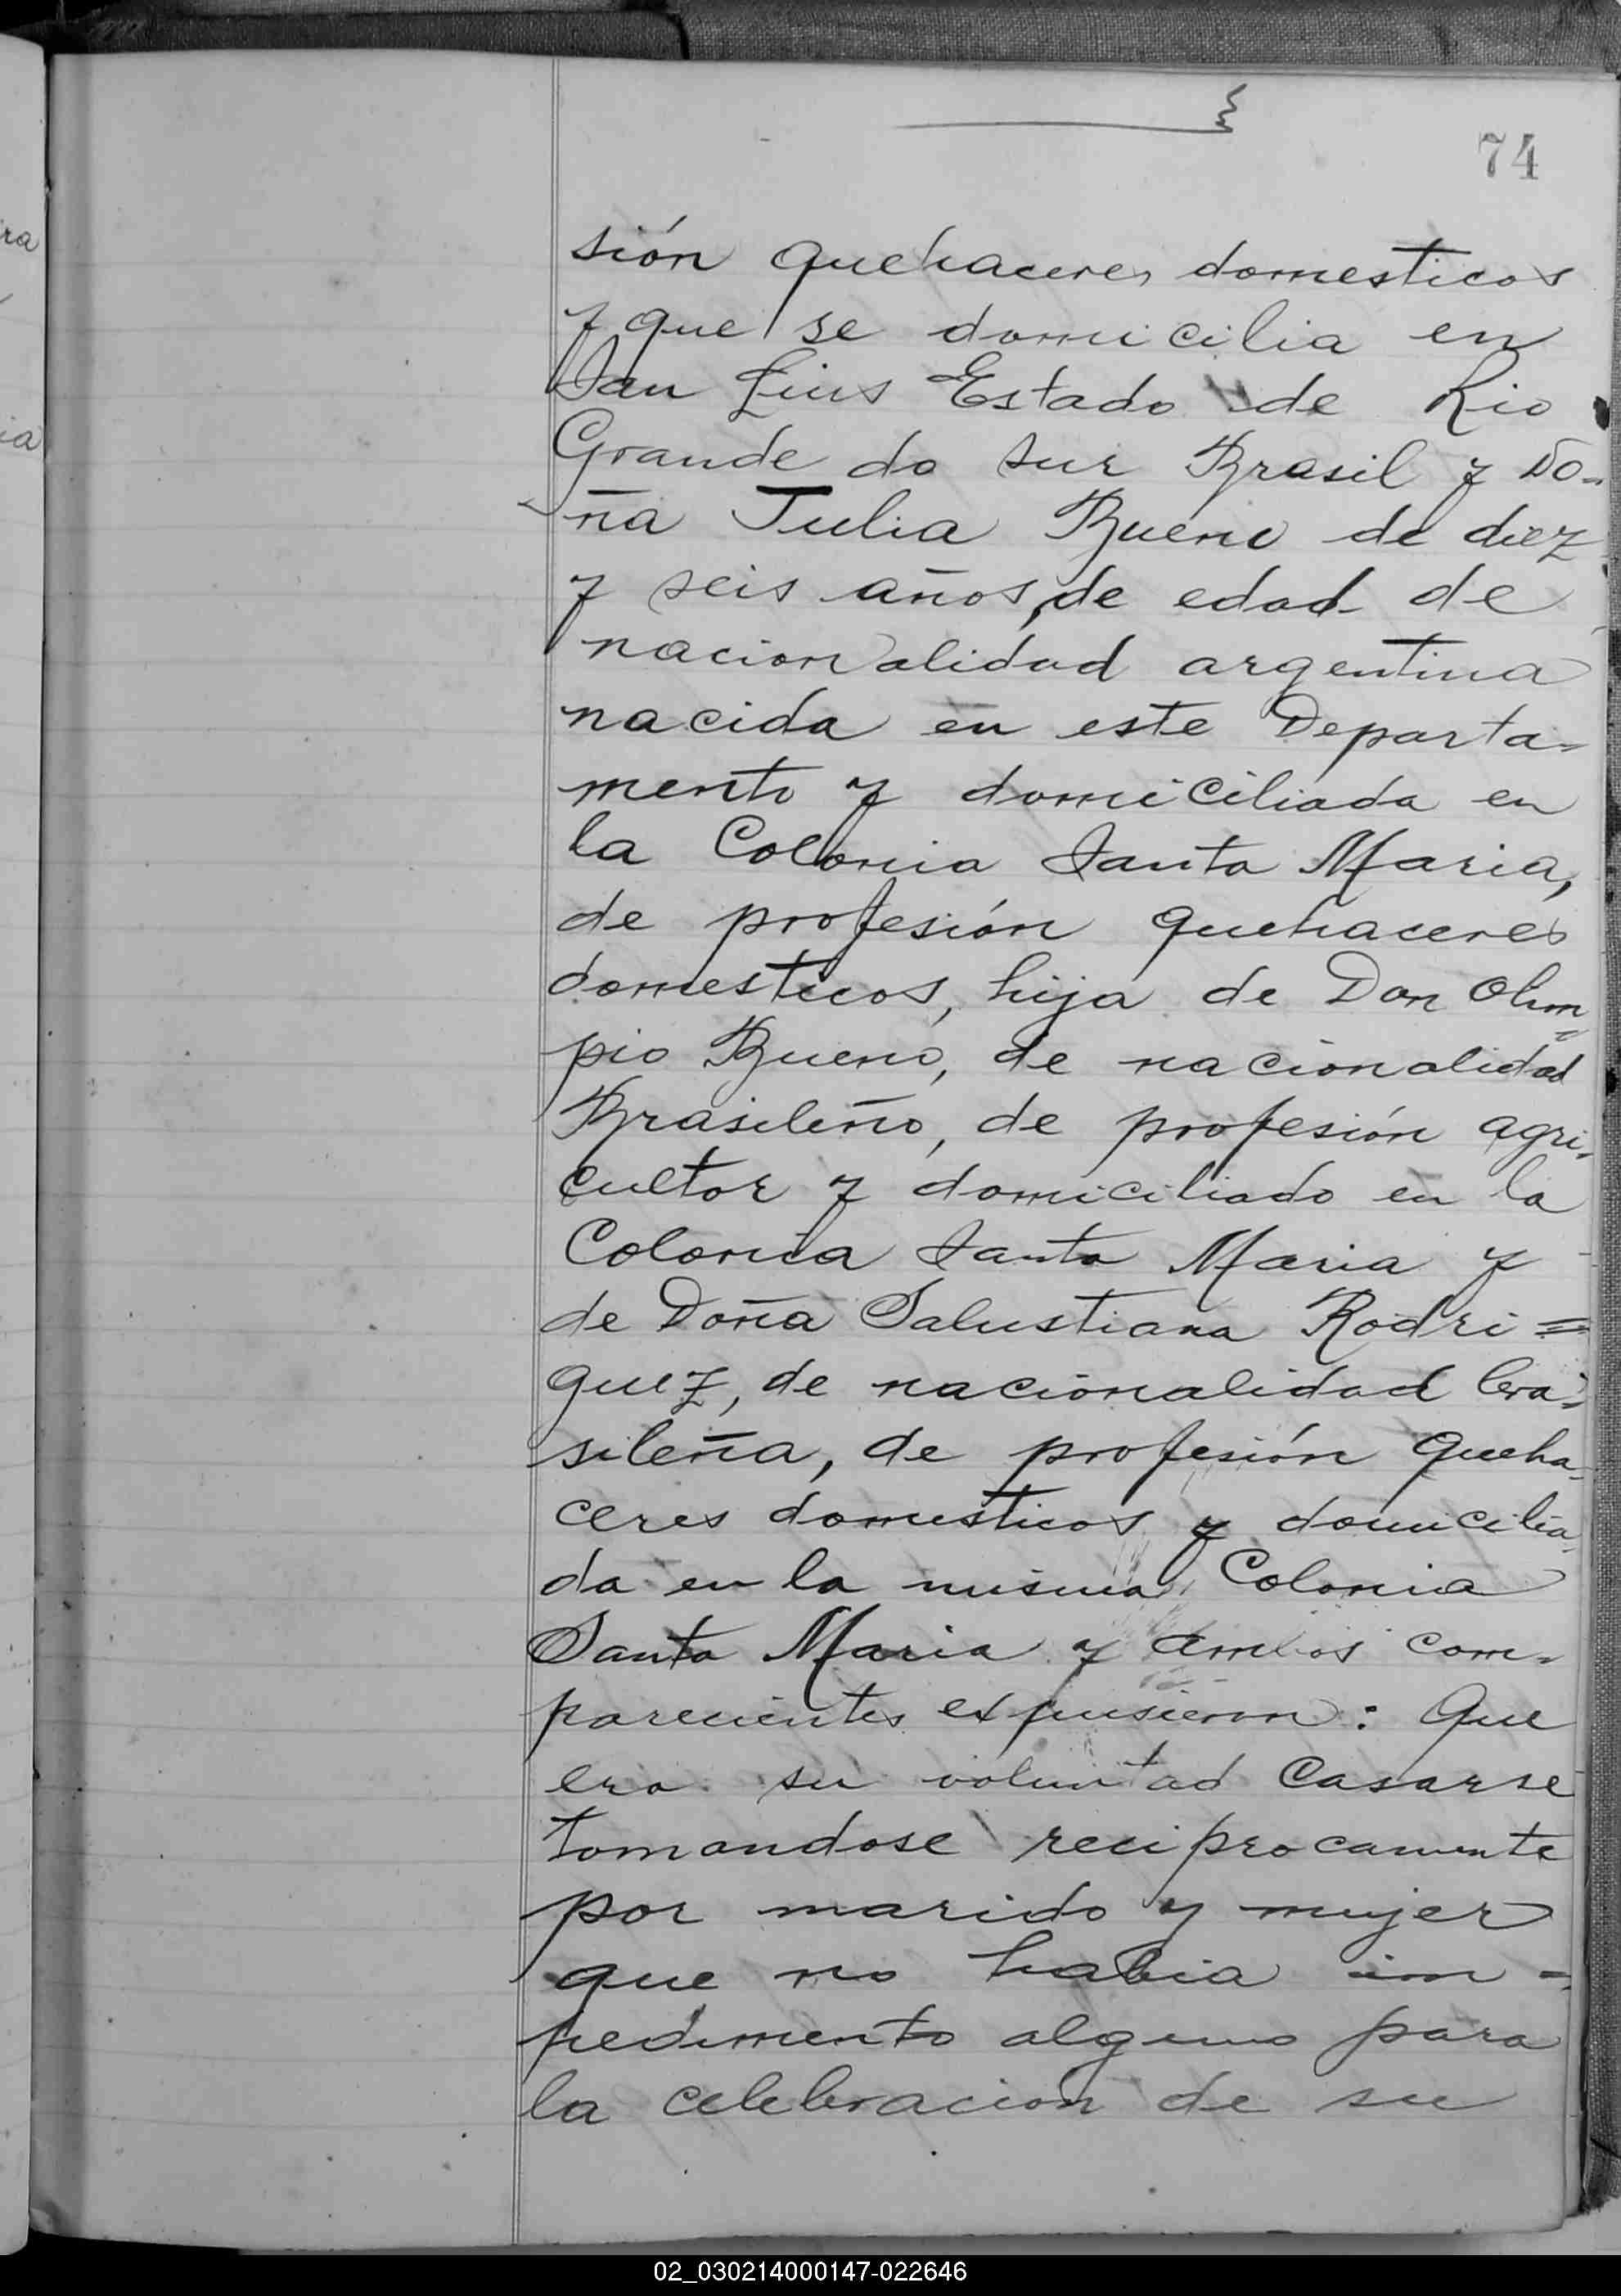 74
sión quehaceres domesticos
y que se domicilia en
San Luis Estado de Rio
Grande do Sur Brasil y Do-
ña Julia Bueno de diez
y seis años, de edad de
nacionalidad argentina
nacida en este Departa-
mento y domiciliada en
la Colonia Santa Maria,
de profesión quehaceres
domesticos, hija de Don Olim=
pio Bueno, de nacionalidad
Brasileño, de profesión agri-
cultor y domiciliado en la
Colonia Santa Maria y
de Doña Salustiana Rodri=
guez, de nacionalidad bra=
sileña, de profesión queha-
ceres domesticos y domicilia-
da en la misma Colonia
Santa Maria y ambos com-
parecientes expusieron: Que
era su voluntad casarse
tomandose reciprocamente
por marido y mujer
que no habia im=
pedimento alguno para
la celebracion de su
ra
ia
02_030214000147-022646